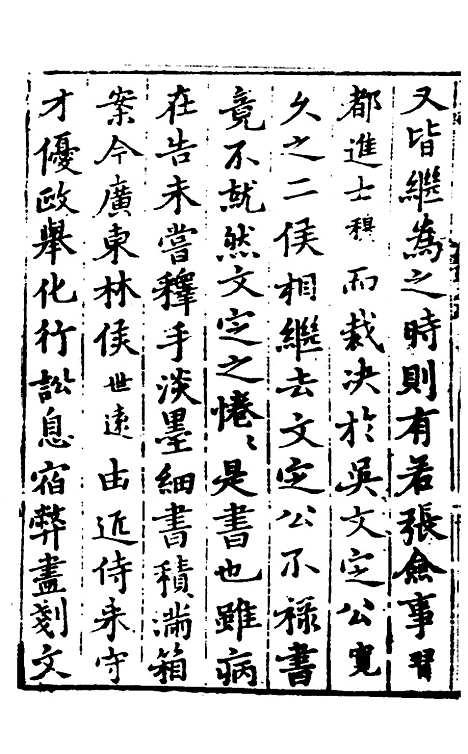 又皆繼為之時則有若張僉事習
都進士穆而裁决於吳文定公寬
久之二侯相繼去文定公不祿書
竟不就然文定之惓〻是書也雖病
在告未嘗釋手淡墨細書積滿箱
案今廣東林侯世遠由近侍来守
才優政舉化行訟息宿弊盡剗文